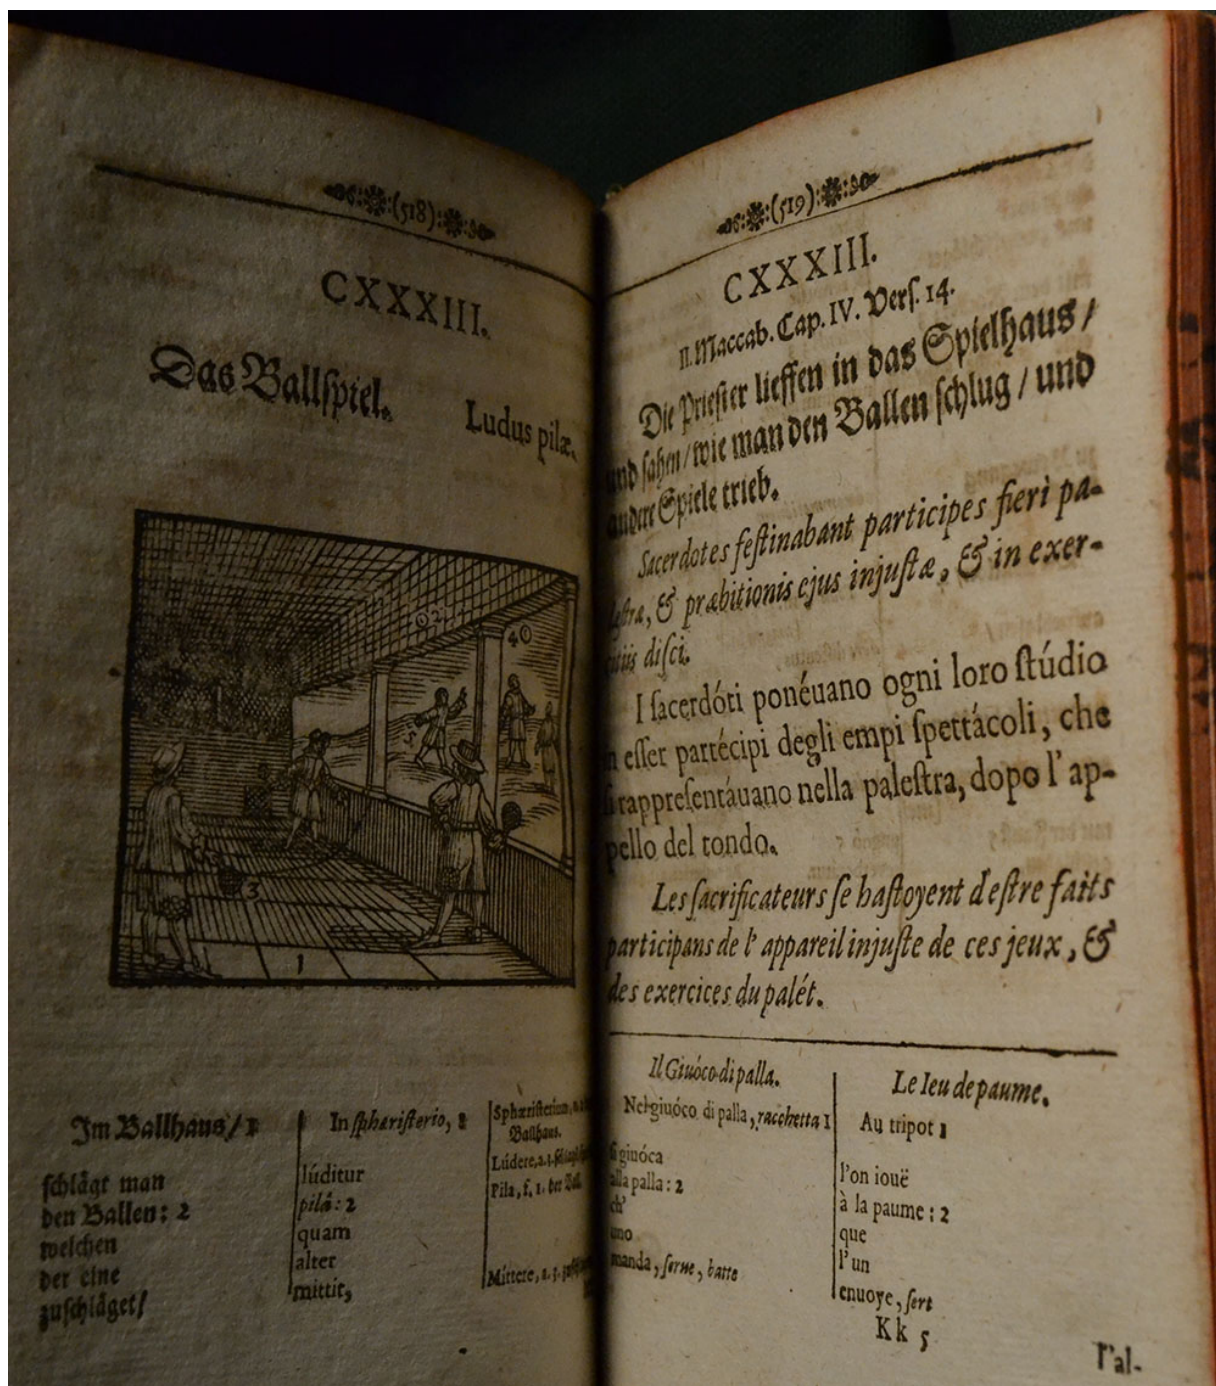 (518)
CXXXIII.
Das Ballſpiel.
Ludus pilæ.
02
40
5
3
1
Im Ballhaus/ 1
ſchlägt man
den Ballen: 2
welchen
der eine
zuſchläget/
In ſphæriſterio, 1
lúditur
pilâ: 2
quam
alter
mittit,
Sphæriſterium,
Ballhaus.
Lúdere, a. 3.
Pila, f. 1. der Ball.
Mittere, a. 3.
(519)
CXXXIII.
II. Maccab. Cap. IV. Verſ. 14.
Die Prieſter lieffen in das Spielhaus/
und ſahen/ wie man den Ballen ſchlug / und
andere Spiele trieb.
Sacerdotes feſtinabant participes fieri pa-
leſtræ, & præbitionis ejus injuſtæ, & in exer-
citiis diſci.
I ſacerdóti ponéuano ogni loro ſtúdio
n eſſer partécipi degli empi ſpettácoli, che
ſi rappreſentáuano nella paleſtra, dopo l' ap-
pello del tondo.
Les ſacrificateurs ſe haſtoyent d'eſtre faits
participans de l' appareil injuſte de ces jeux, &
des exercices du palét.
Il Giuóco di palla.
Nel giuóco di palla, racchetta 1
ſi giuóca
alla palla: 2
ch'
uno
manda, ſerue, batte
Le Ieu de paume.
Au tripot 1
l'on iouë
à la paume: 2
que
l'un
enuoye, ſert
Kk 5
l'al-